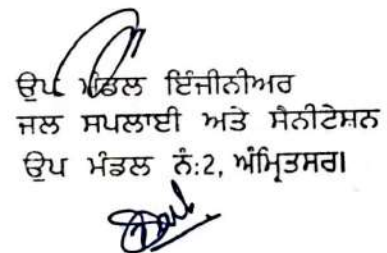 ਉਪ ਮੰਡਲ ਇੰਜੀਨੀਅਰ
ਜਲ ਸਪਲਾਈ ਅਤੇ ਸੈਨੀਟੇਸ਼ਨ
ਉਪ ਮੰਡਲ ਨੰ:2, ਅੰਮ੍ਰਿਤਸਰ।